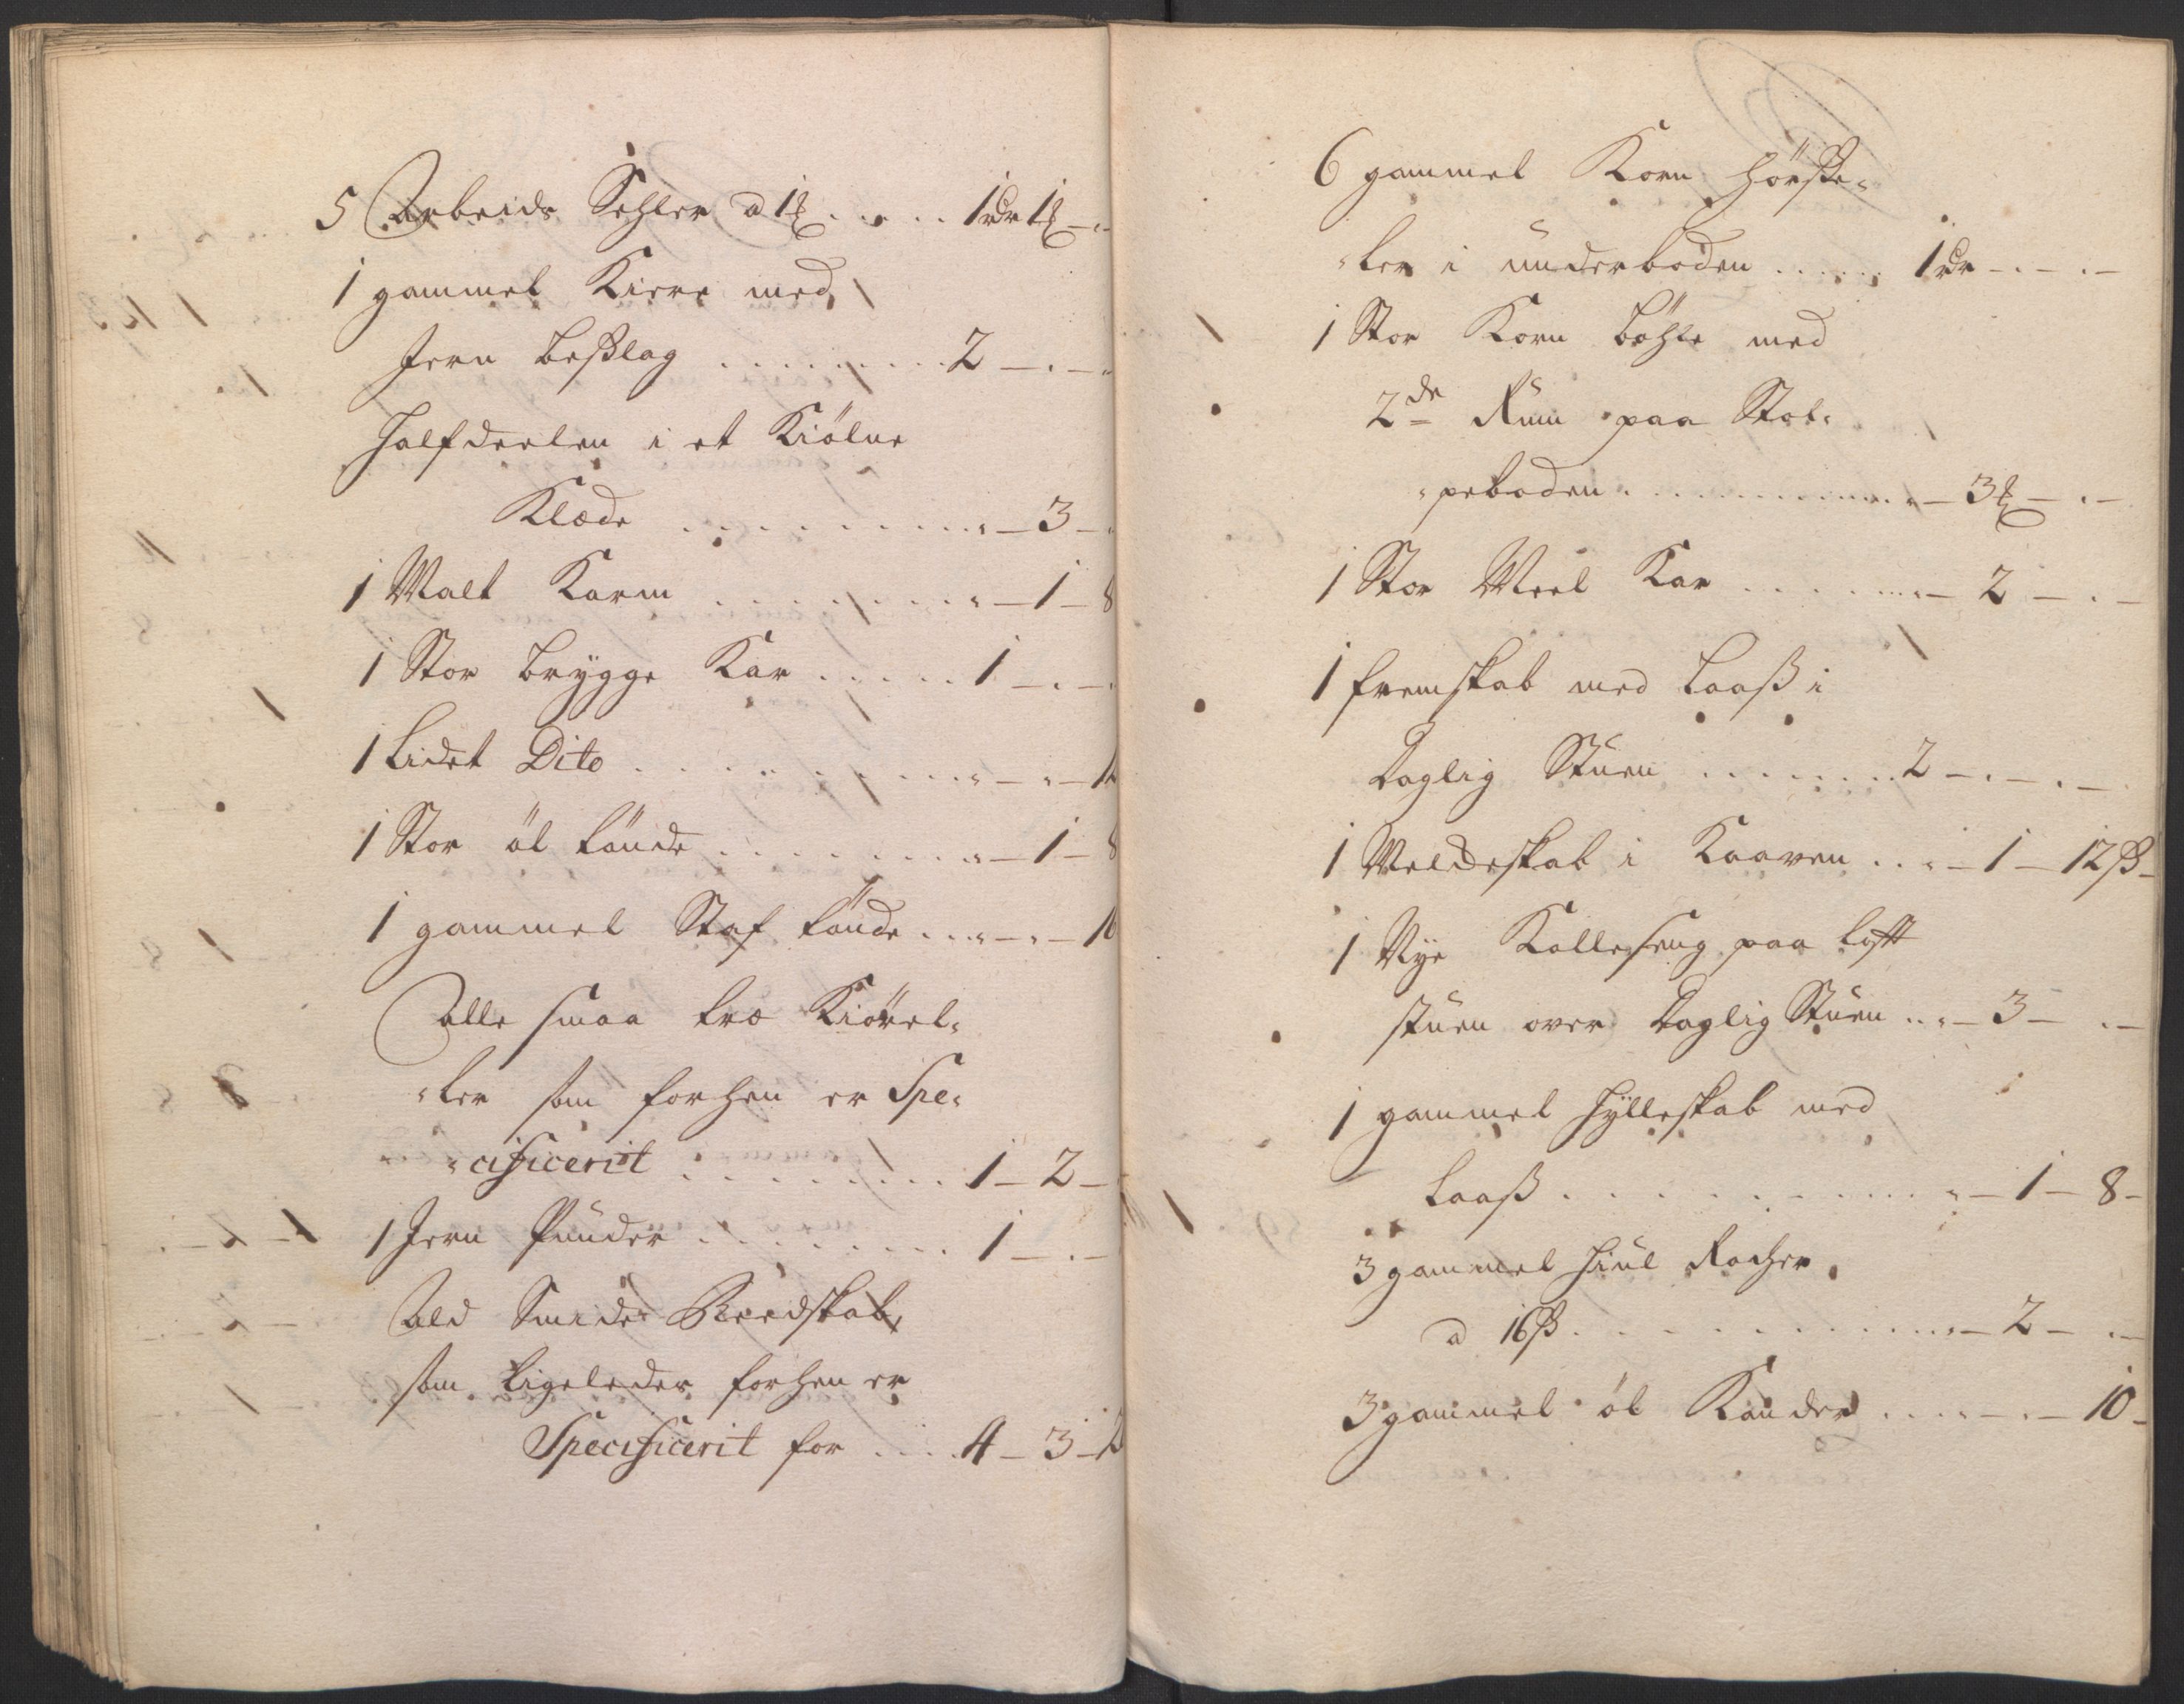 5 Arbeids Sehler a 1 ℔ . . . . 1 rdr 1 ℔ - . -
1 gammel Kiere med
Jern beslag . . . . . . . . 2 - . -
Halfdeelen i et Kiölne
Klæde . . . . . . . . „ - 3 - .
1 Malt Karm . . . . . . . „ - 1 - 8
1 Stor brygge Kar . . . . . 1 - . - .
1 Lidet Dito . . . . . . . . „ - „ - 12
1 Stor öl tönde . . . . . . . „ - 1 - 8
1 gammel Staf tönde . . . „ - „ - 16
Alle smaa træ Kiörel„
„ler som forhen er Spe„
„cificerit . . . . . . . . 1 - 2 -
1 Jern Pünder . . . . . . . . 1 - . -
Ald Smide Reedskab,
som Ligeledes forhen er
Specificerit for . . . . 4 - 3 - 12
6 gammel Korn hörske„
„ler i ünderboden . . . . . 1 rdr - . - . -
1 Stor Korn böhle med
2de Rum paa Stab„
„peboden . . . . . . . . . . „ - 3 ℔ - . -
1 Stor Meel Kar . . . . . . „ - 2 - . -
1 fremskab med Laaß i
Daglig Stuen . . . . . . . 2 - . - . -
1 Meldeskab i Kaaven . . „ - 1 - 12 ß -
1 Nye Kalleseng paa loft
stuen over Daglig Stuen . . „ - 3 - . -
1 gammel Hylleskab med
Laaß . . . . . . . . . . . „ - 1 - 8 -
3 gammel Hiul Rocher
a 16 ß . . . . . . . . . . . „ - 2 - . -
3 gammel öl Kander . . . „ - . - 10 -